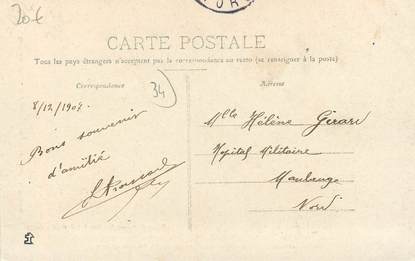 20€
CARTE POSTALE
Tous les pays étrangers n'acceptent pas la correspondance au recto (se renseigner à la poste)
Correspondance
34
8/12/1907.
Bons souvenir
d'amitié
Adresse
Mlle Hélène Girard
Hopital Militaire
Maubeuge
Nord